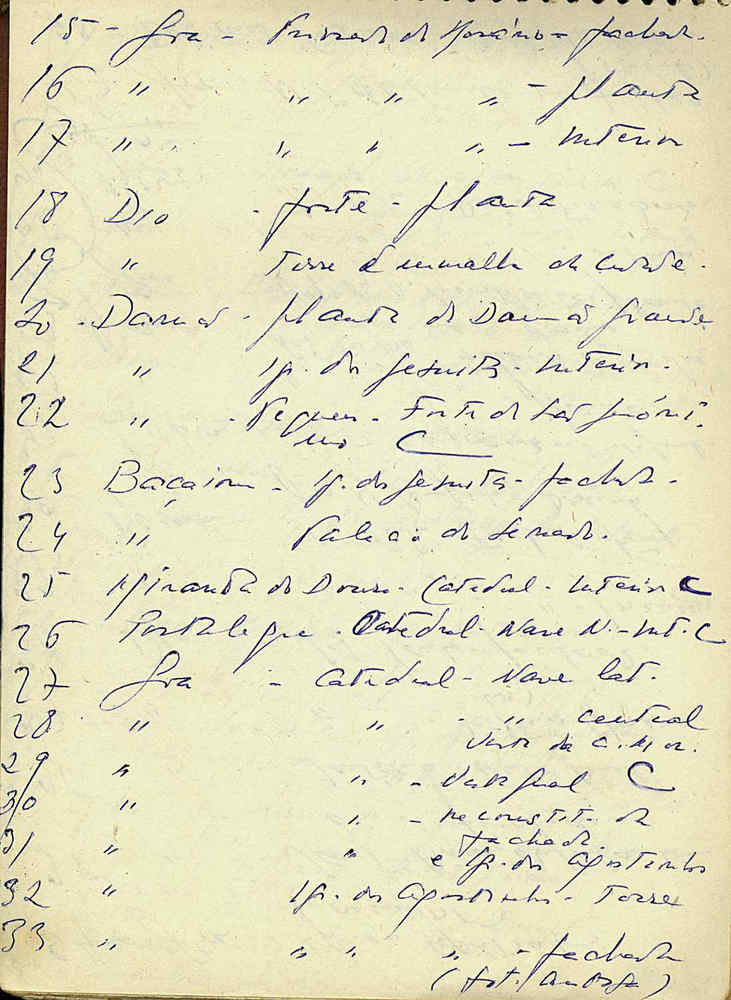 15 - Goa - Priorado do Rosário - fachada.
16 " " " " - planta
17 " " " " - Interior
18 Dio - forte - planta
19 " Torre e muralha da cidade.
20 - Damão - planta de Damão Grande
21 " Ig. dos Jesuitas - Interior.
22 " - Pequeno - Forte de São Jeróni
mo C
23 Baçaim - Ig. dos Jesuitas - fachada.
24 " Palacio do Senado.
25 Miranda do Douro - Catedral - Interior C
26 Portalegre - Catedral - Nave N. - Int. C
27 Goa - Catedral - Nave lat.
28 " " - " central
Vista da C. Mor.
29 " " - Vista geral C
30 " " - reconstit. da
fachada
31 " " e Ig. dos Agostinhos
32 " Ig. dos Agostinhos - Torre
33 " " " " - fachada
(fot.